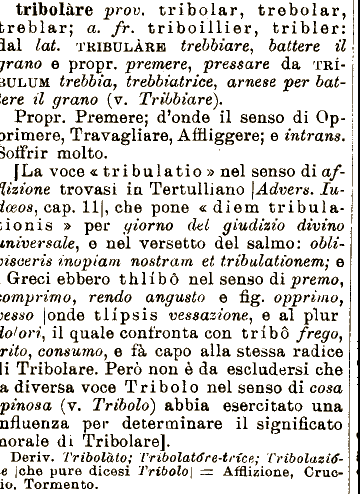 tribolàre prov. tribolar, trebolar,
treblar; a. fr. triboillier, tribler:
dal lat. TRIBULÀRE trebbiare, battere il
grano e propr. premere, pressare da TRÍ-
BULUM trebbia, trebbiatrice, arnese per bat-
tere il grano (v. Tribbiare).
Propr. Premere; d'onde il senso di Op-
primere, Travagliare, Affliggere; e intrans.
Soffrir molto.
[La voce « tribulatio » nel senso di af-
flizione trovasi in Tertulliano |Advers. Iu-
dœos, cap. 11|, che pone « diem tribula-
tionis » per giorno del giudizio divino
universale, e nel versetto del salmo: obli-
visceris inopiam nostram et tribulationem; e
i Greci ebbero thlíbô nel senso di premo,
comprimo, rendo angusto e fig. opprimo,
vesso |onde tlípsis vessazione, e al plur
dolori, il quale confronta con tríbô frego,
trito, consumo, e fà capo alla stessa radice
di Tribolare. Però non è da escludersi che
la diversa voce Tribolo nel senso di cosa
spinosa (v. Tribolo) abbia esercitato una
influenza per determinare il significato
morale di Tribolare].
Deriv. Tribolàto; Tribolatóre-trice; Tribolazió-
ne |che pure dicesi Tribolo| = Afflizione, Cruc-
cio, Tormento.